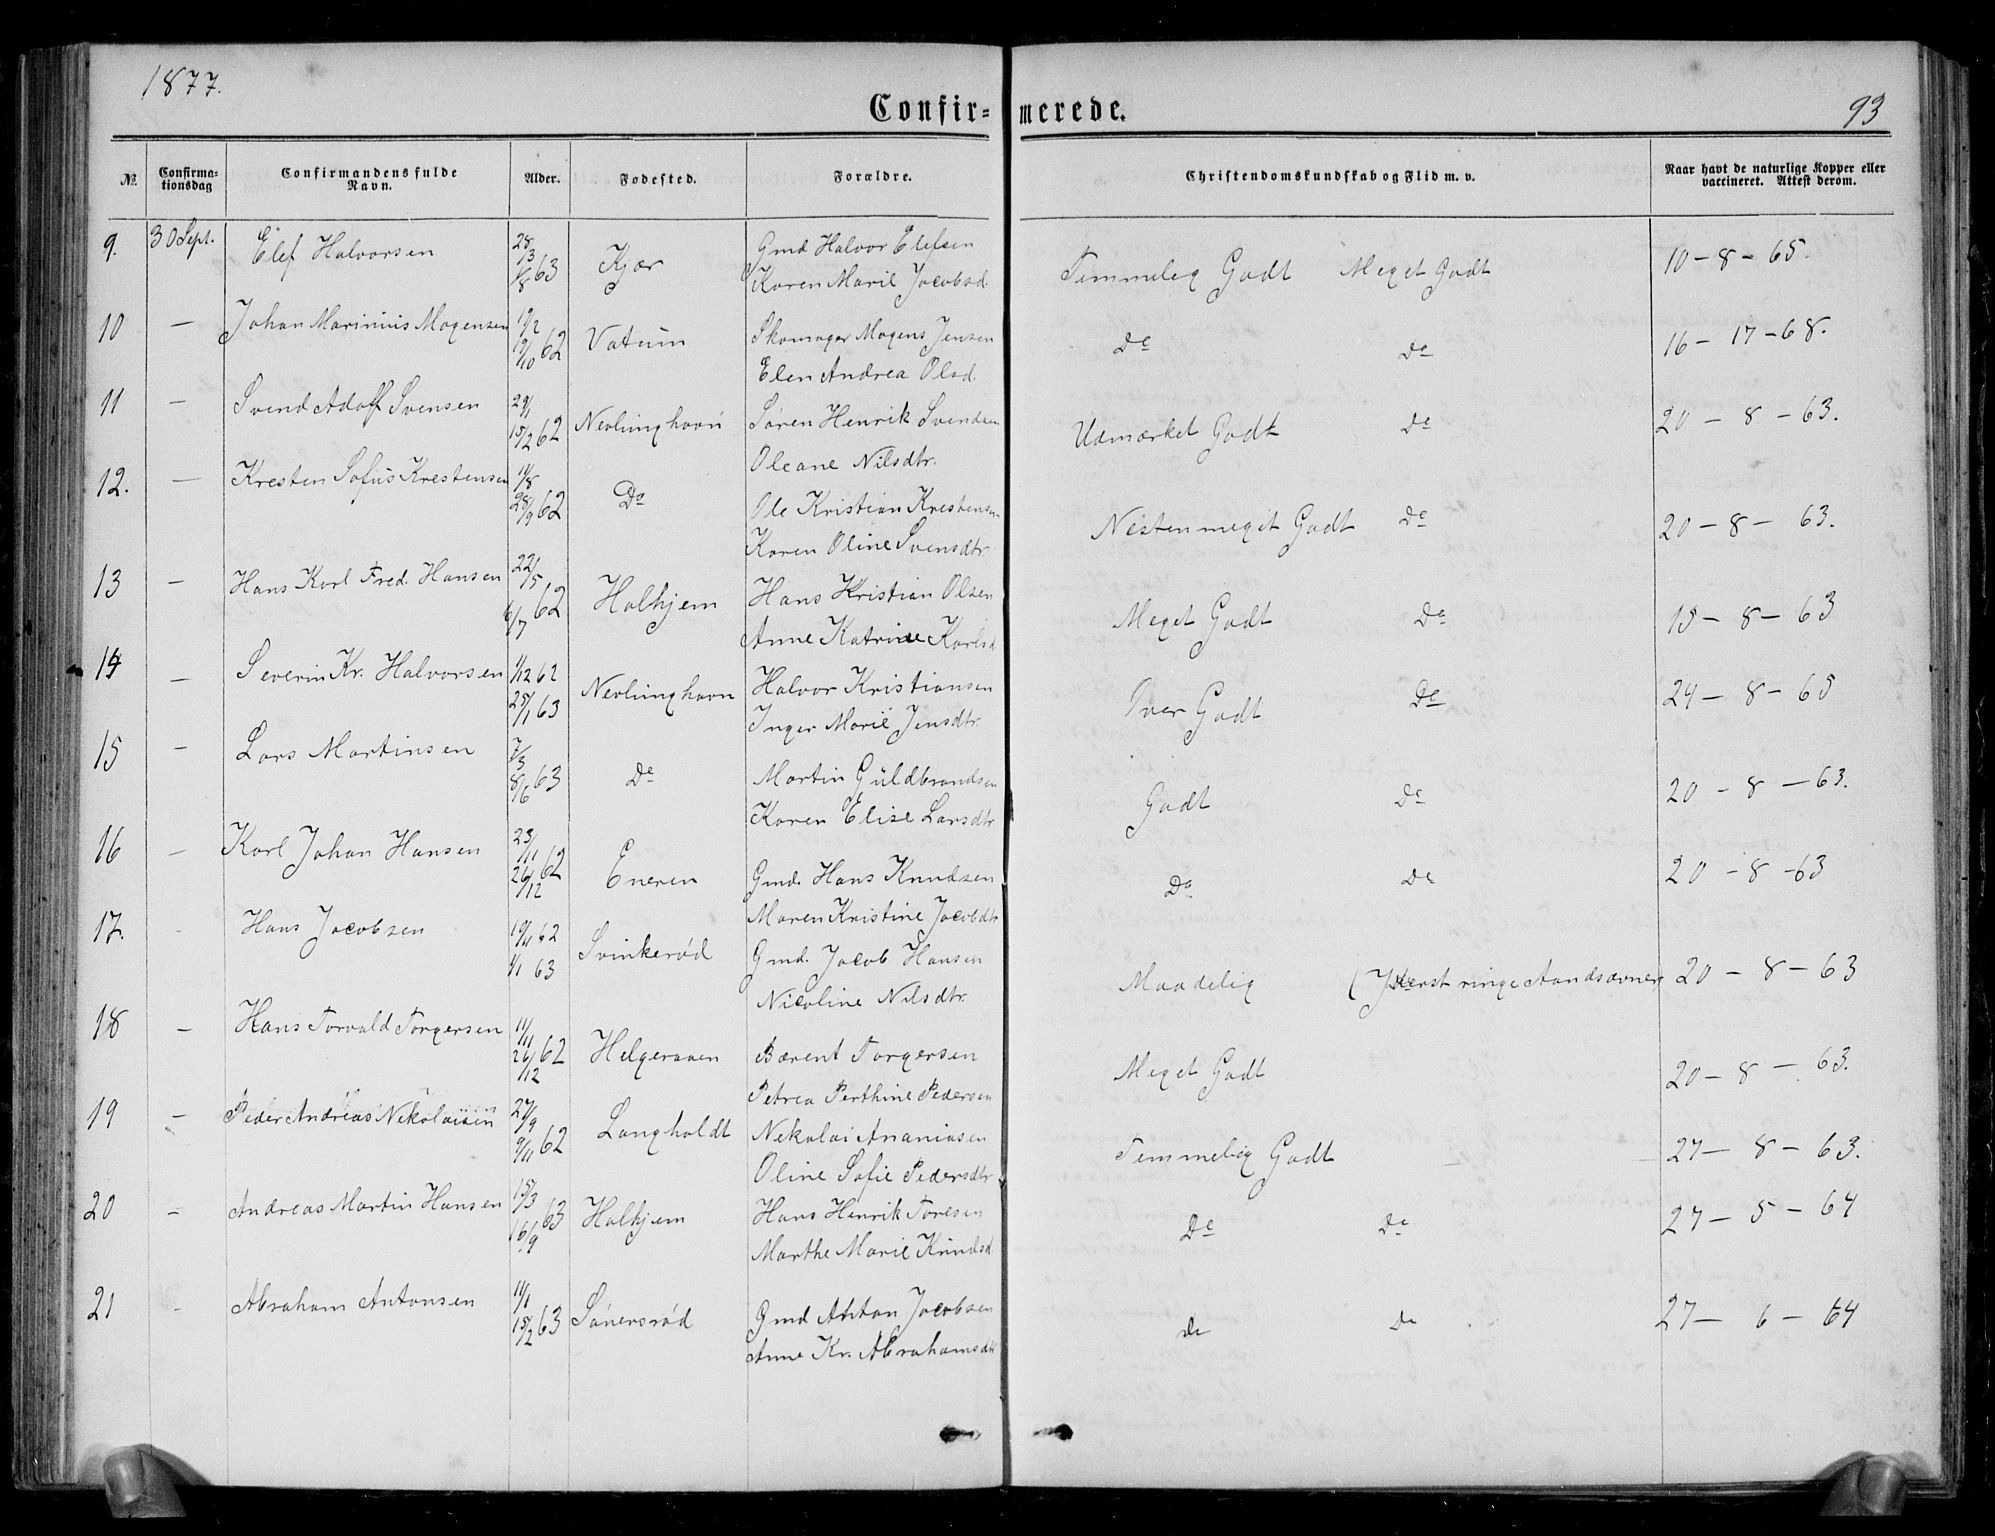 1877.
Confirmerede.
93
No. Confirmationsdag Confirmandens fulde Navn. Alder. Fodested. Forældre. Christendomskundskab og Flid m. v. Naar havt de naturlige Kopper eller vaccineret. Attest derom.
9. 30 Sept. Elef Halvorsen 28/3 1/8 63 Kjær Gmd Halvor Elefsen Temmeleg Godt Meget Godt 10-8-65.
Karen Marie Jacobsd.
10 — Johan Marinius Mogensen 19/2 19/10 62 Vatum Skomager Mogens Jensen Do Do 16-17-68.
Elen Andrea Olsd.
11 — Svend Adolf Svensen 29/1 15/2 62 Nevlunghavn Søren Henrik Svendsen Udmærket Godt Do 20-8-63.
Oleane Nilsdtr.
12. — Kresten Sofus Krestensen 14/8 28/9 62 Do Ole Kristian Krestensen Nesten meget Godt Do 20-8-63.
Karen Oline Svensdtr
13 — Hans Karl Fred. Hansen 22/5 6/7 62 Halhjem Hans Kristian Olsen Meget Godt Do 15-8-63
Anne Katrine Karlsd
14 — Severin Kr. Halvorsen 1/12 62 25/1 63 Nevlunghavn Halvor Kristiansen Tver Godt Do 24-8-65
Inger Marie Jensdtr.
15 — Lars Martinsen 7/3 8/6 63 Do Martin Guldbrandsen Godt Do 20-8-63.
Karen Elise Larsdtr
16 — Karl Johan Hansen 23/11 26/12 62 Eneren Gmd. Hans Knudsen Do Do 20-8-63
Maren Kristine Jacobdtr
17. Hans Jacobsen 62 1/1 63 Svinkerød Gmd. Jacob Hansen Maadelig (Yderst ringe Aandsævner 20-8-63
Nicoline Nilsdtr.
18 — Hans Torvald Torgersen 11/11 26/12 62 Helgeraaen Bærent Torgersen Meget Godt 20-8-63.
Petrea Perthine Pedersen
19 — Peder Andreas Nekolaisen 27/9 9/11 62 Langholdt Nekolai Ananiasen Temmeleg Godt — — 27-8-63.
Oline Sofie Pedersdtr
20 — Andreas Martin Hansen 15/3 16/9 63 Halhjem Hans Henrik Toresen Do Do 27-5-64
Marthe Marie Knudsd
21 - Abraham Antonsen 11/1 15/2 63 Sønersrød Gmd Anton Jacobsen Do Do 27-6-64
Anne Kr. Abrahamsdtr